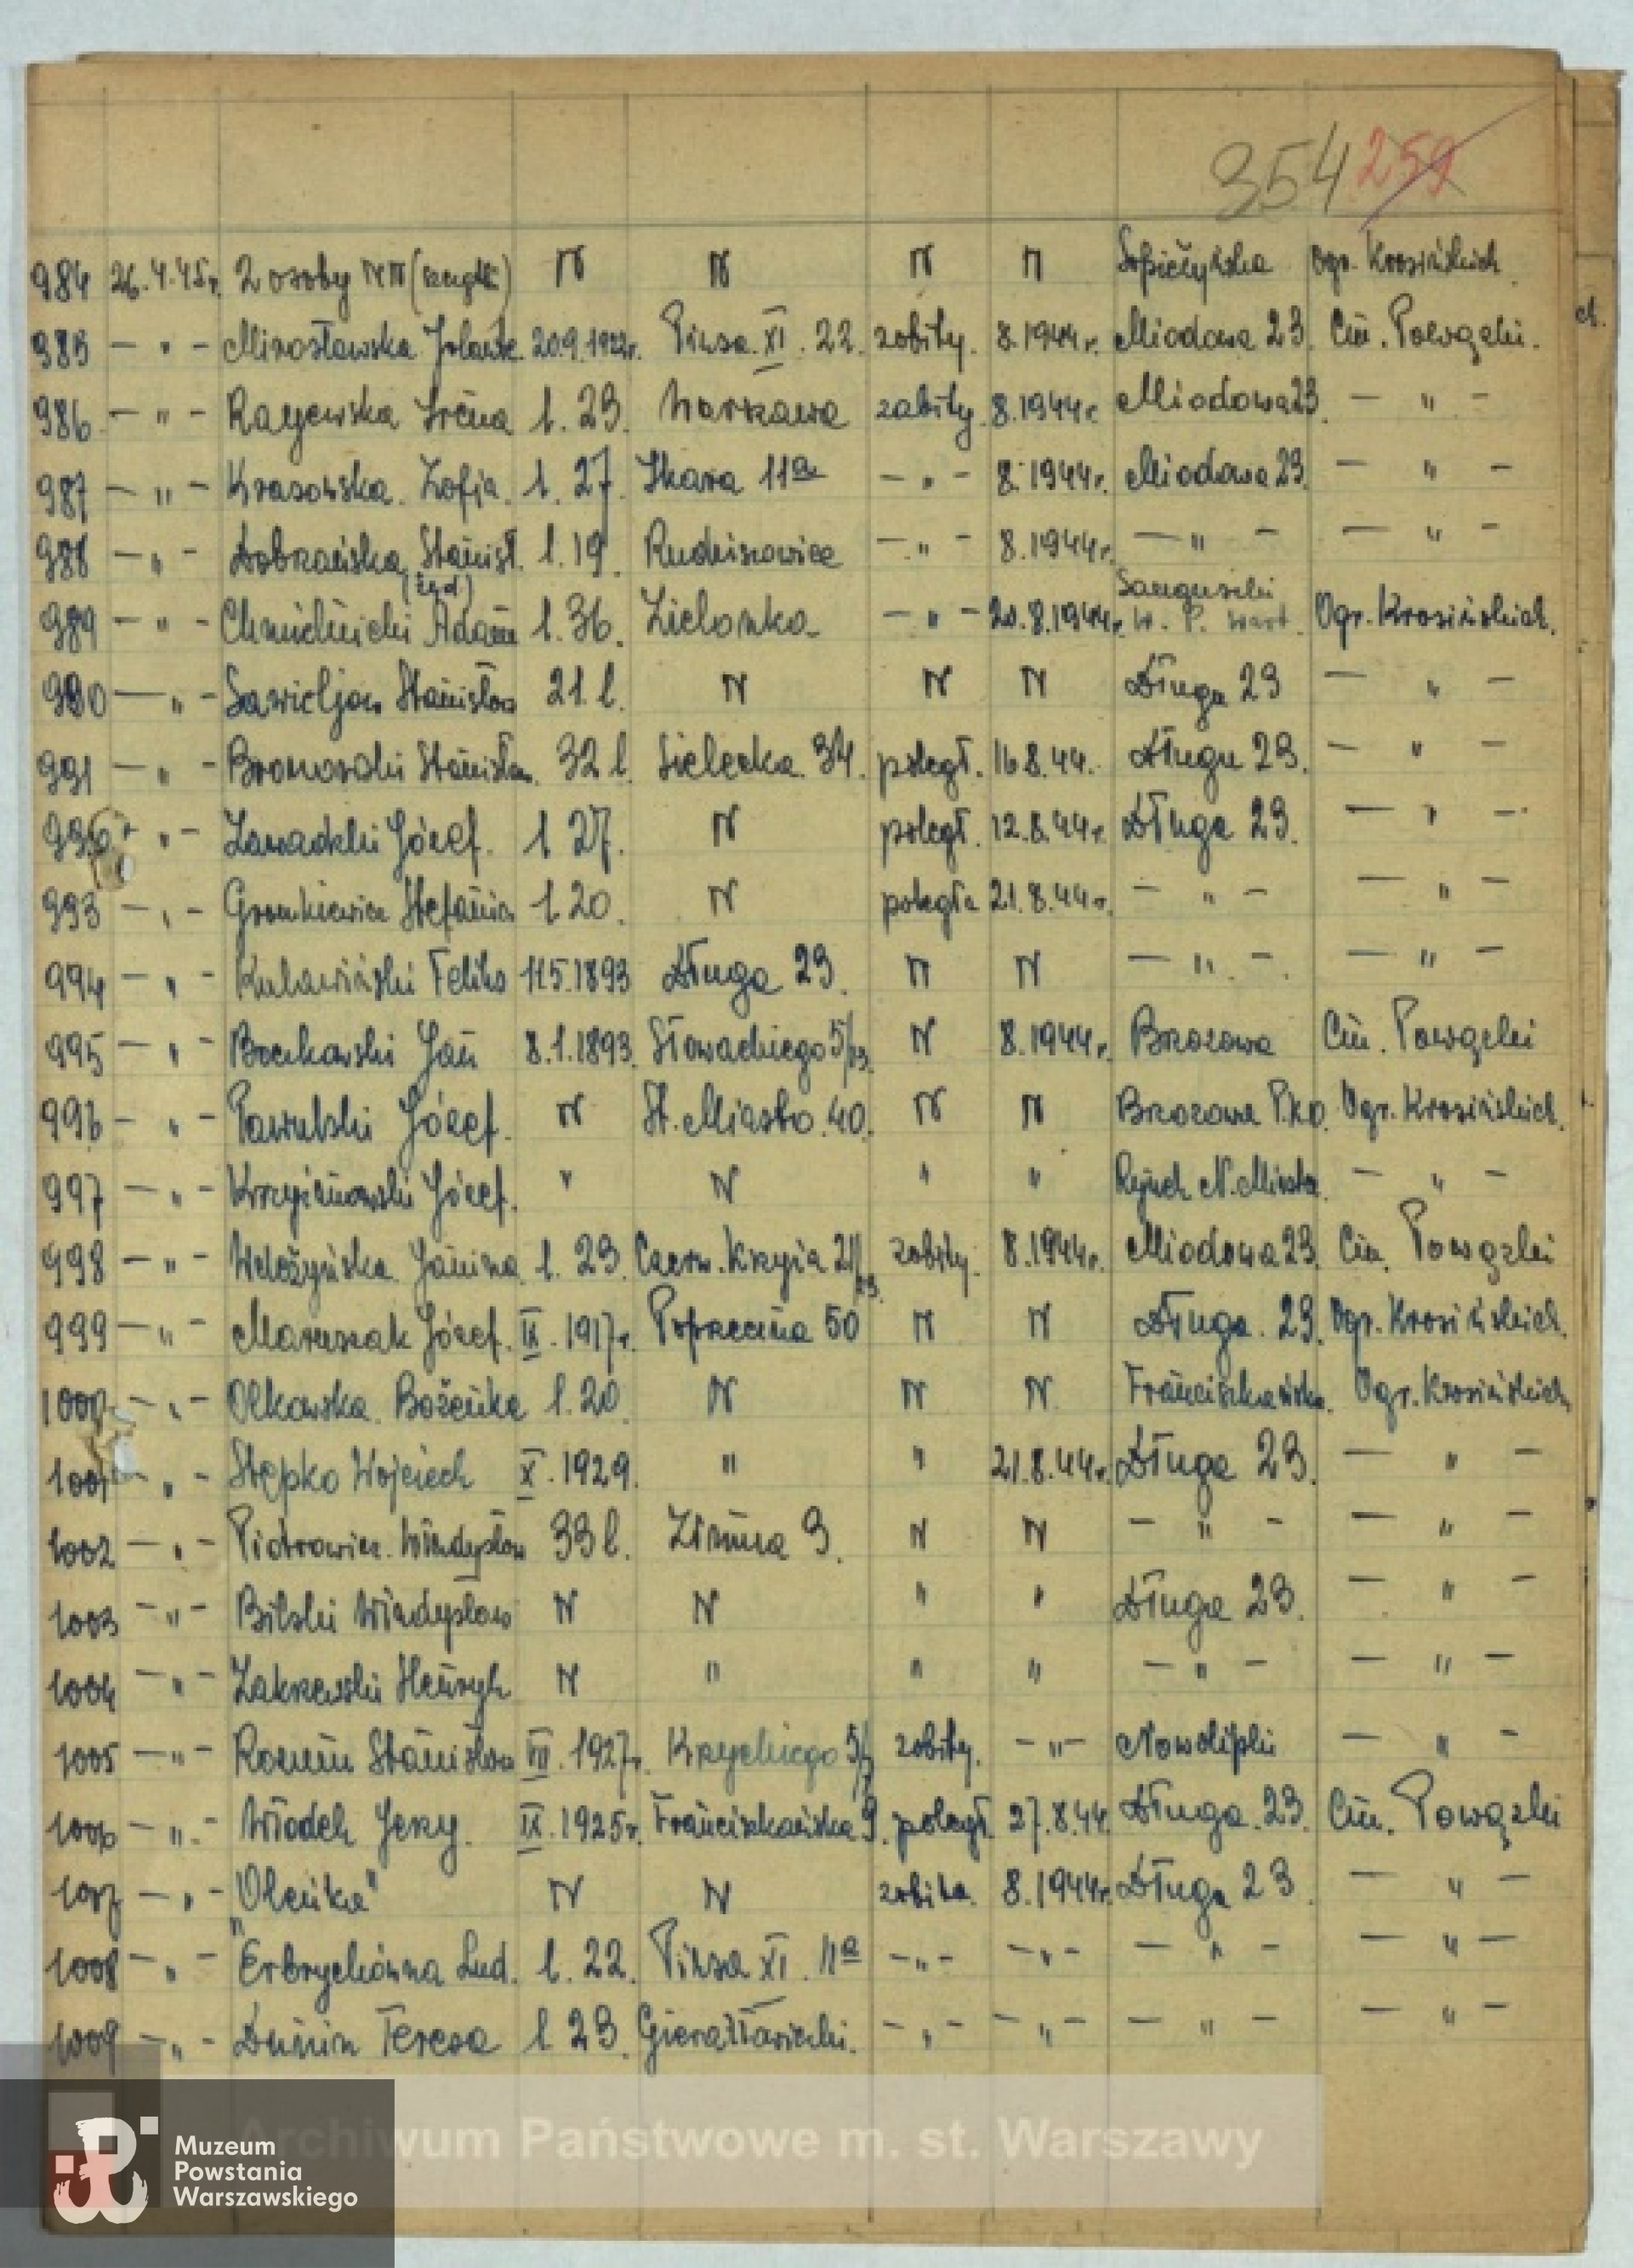 354 259
984 26.4.45r. 2 osoby NN N N N N Ogr. Krasińskich
985 — " — Mirosławska Jolanta 20.9.1922r. Piusa XI. 22. zabity. 8.1944r. Miodowa 23. Cm. Powązki.
986 — " — Rajewska Irena l. 23. Warszawa zabity. 8.1944r. Miodowa 23. — " —
987 — " — Krasowska Zofja. l. 27. 11a — " — 8.1944r. Miodowa 23. — " —
988 — " — Dobrzańska Stanisł. l. 19. — " — 8.1944r. — " — — " —
(żyd) Sanguszki
989 — " — Chmielnicki Adam l. 36. Zielonka — " — 20.8.1944r. W. P. Ogr. Krasińskich.
990 — " — Stanisław 21 l. N N N Długa 23 — " —
991 — " — Stanisław 32 l. Sielecka 34. poległ. 16.8.44. Długa 23. — " —
992 " — Zawadzki Józef. l 27. N poległ. 12.8.44r. Długa 23. — " —
993 — " — Stefania l. 20. N poległa 21.8.44r. — " — — " —
994 — " — Kulawiński Feliks 11.5.1893 Długa 23. N N — " — — " —
995 — " — Jan 8.1.1893. Słowackiego 5/ N 8.1944r. Brzozowa Cm. Powązki
996 — " — Józef. N St. Miasto 40. N N Brzozowa Ogr. Krasińskich.
997 — " — Krzyżanowski Józef. " N " " Rynek N. Miasta. — " —
998 — " — Janina l. 23. Czerw. Krzyża 21/ zabity. 8.1944r. Miodowa 23. Cm. Powązki
999 — " — Maruszak Józef. IX. 1917r. Poprzeczna 50 N N Długa 23. Ogr. Krasińskich.
1000 — " — Olkowska Bożenka l. 20. N N N Franciszkańska. Ogr. Krasińskich
1001 — " — Stępko Wojciech X. 1929. " " 21.8.44r. Długa 23. — " —
1002 — " — Piotrowicz Władysław 33 l. 3. N N — " — — " —
1003 — " — Bilski Władysław N N " " Długa 23. — " —
1004 — " — Zakrzewski Henryk N " " " — " — — " —
1005 — " — Stanisław 1927r. Krzyckiego 5/ zabity. — " — Nowolipki — " —
1006 — " — Włodek Jerzy. IX. 1925r. Franciszkańska 9. poległ. 27.8.44. Długa 23. Cm. Powązki
1007 — " — "Oleńka" N N zabita. 8.1944r. Długa 23. — " —
1008 — " — Erbrychówna Lud. l. 22. Piusa XI. 11a — " — — " — — " — — " —
1009 — " — Dunin Teresa l 23. — " — — " — — " — — " —
Archiwum Państwowe m. st. Warszawy
Muzeum
Powstania
Warszawskiego